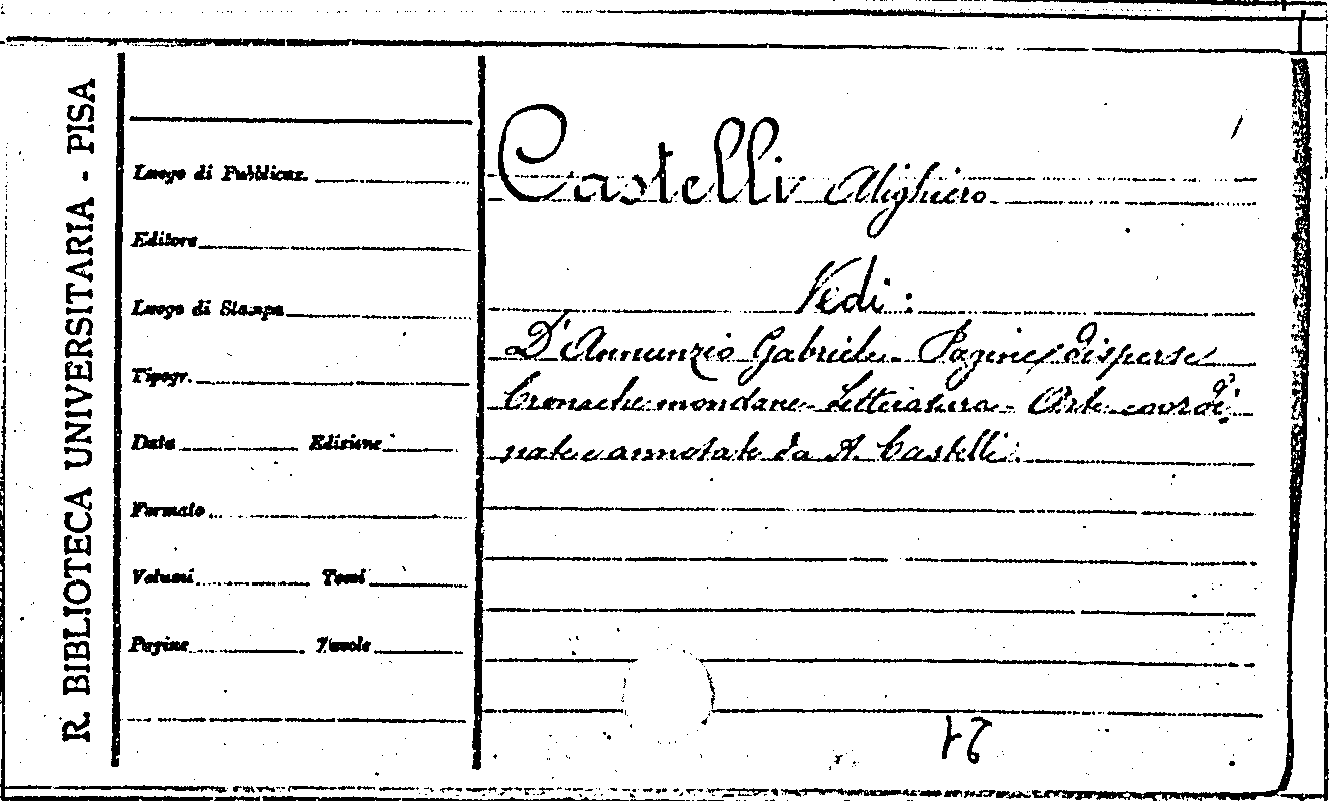 R. BIBLIOTECA UNIVERSITARIA - PISA
Luogo di Pubblicaz.
Editore
Luogo di Stampa
Tipogr.
Data Edizione
Formato
Volumi Tomi
Pagine Tavole
Castelli Alighiero
Vedi:
D'Annunzio Gabriele - Pagine disperse
Cronache mondane - Letteratura - Arte coordi
nate e annotate da A. Castelli.